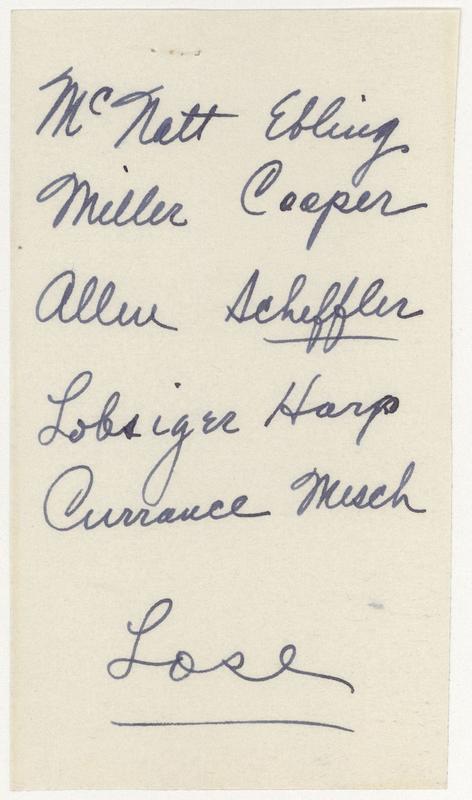 McNatt Ebling
Miller Cooper
Allen Scheffler
Lobsiger Harp
Currance Mesch
Lose